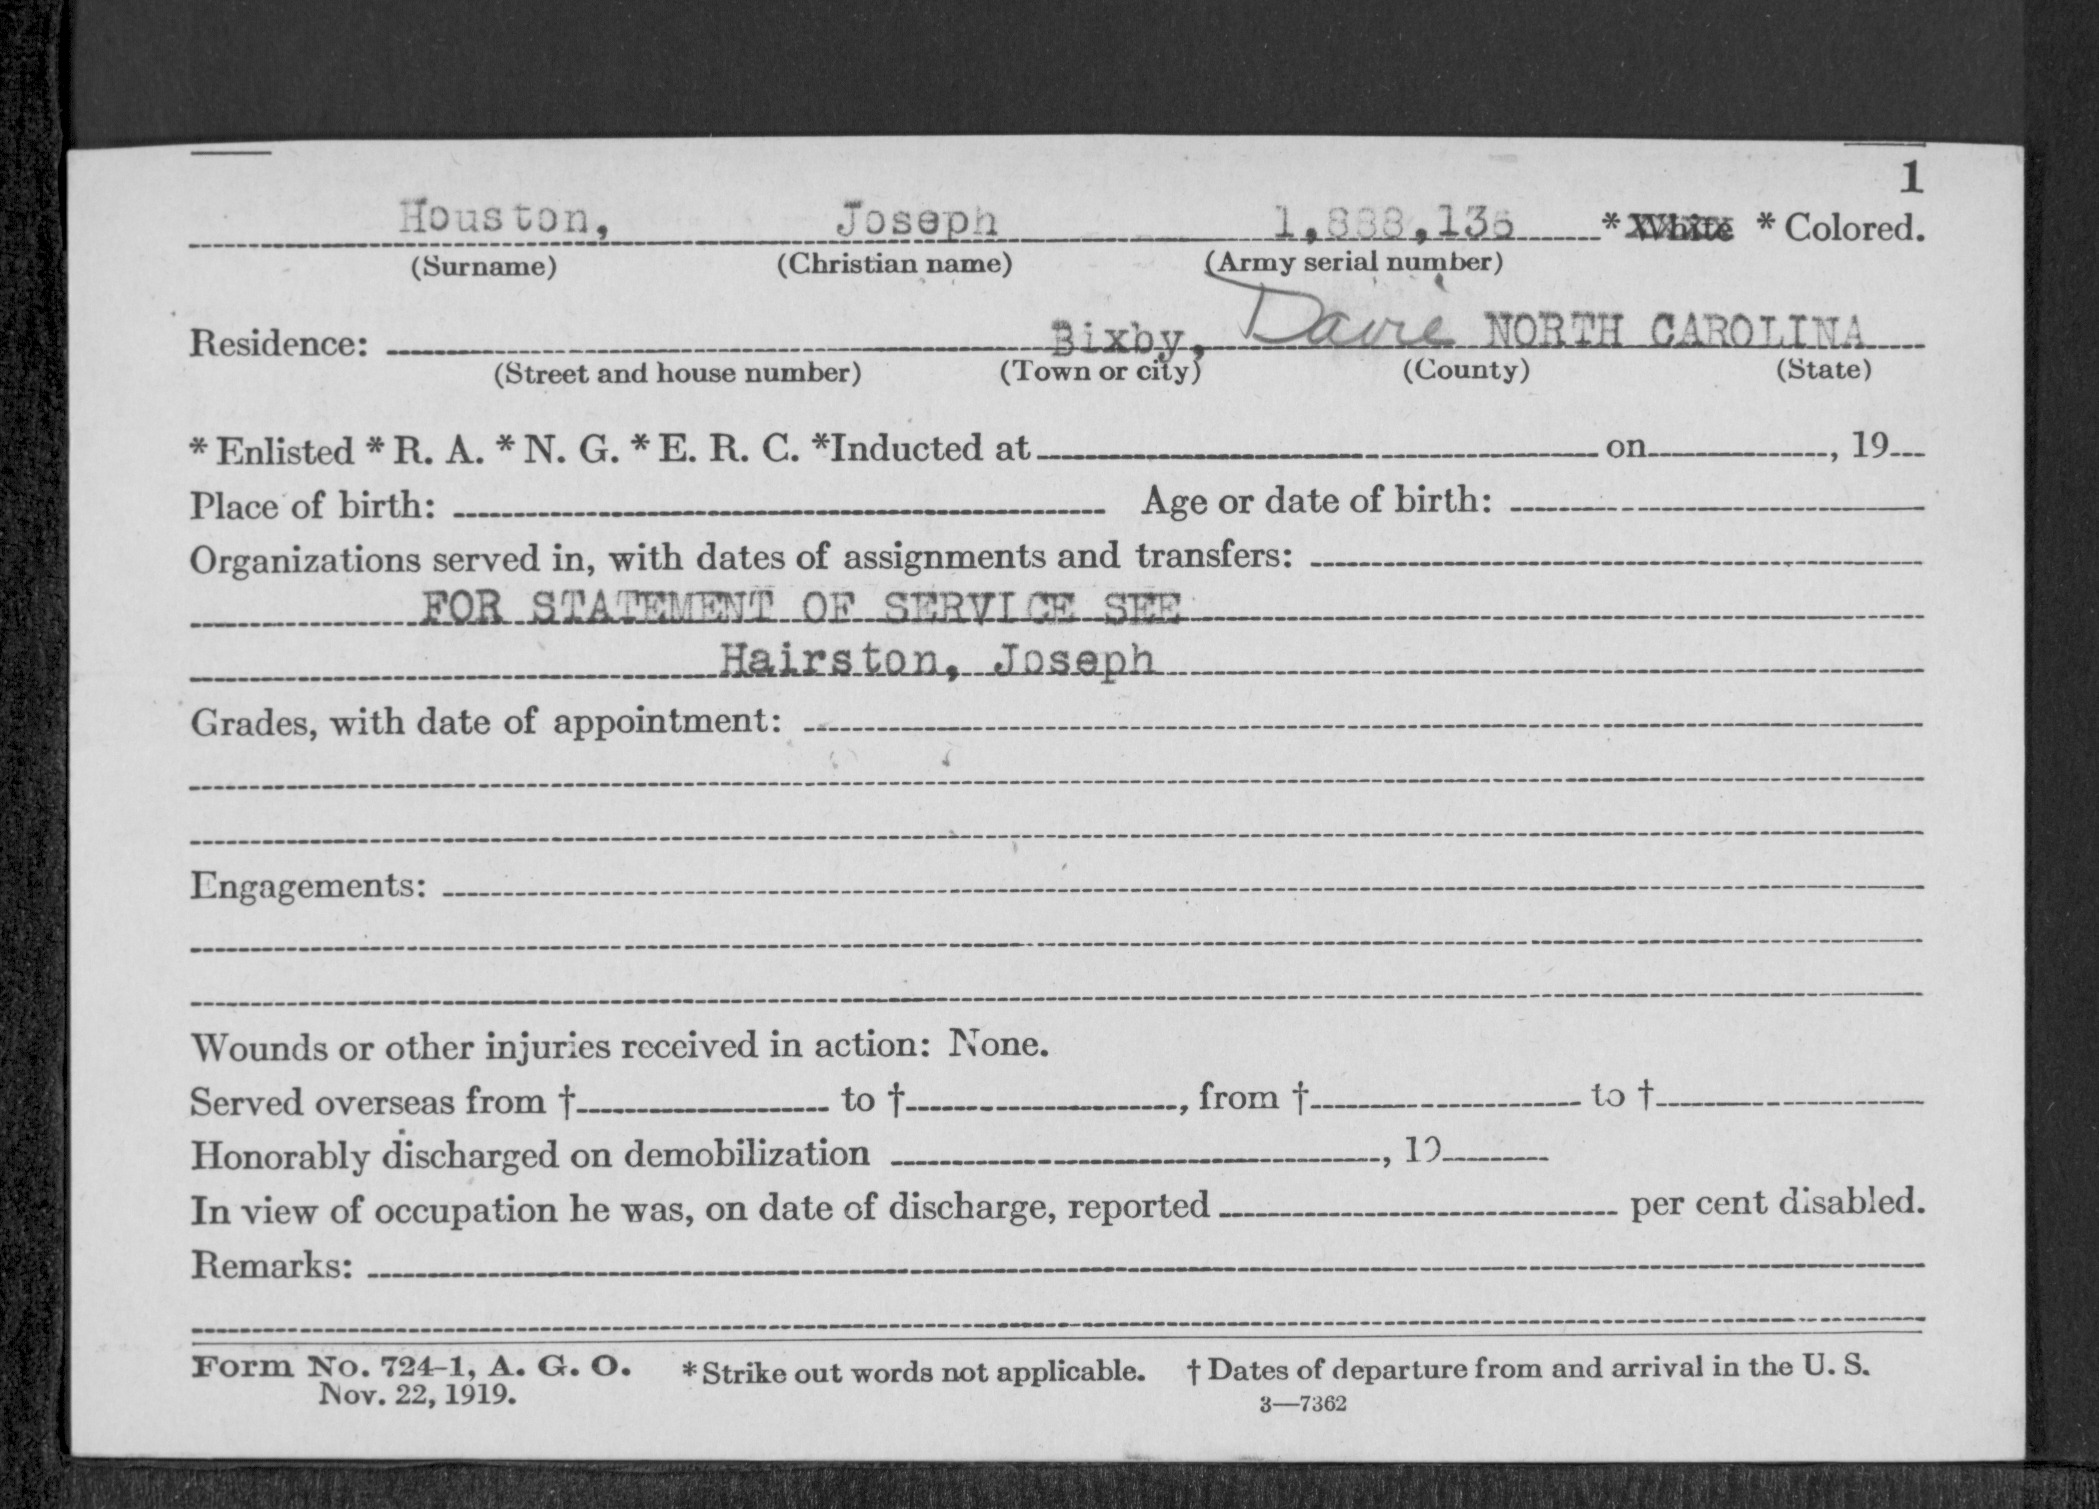 1
Houston, Joseph 1,888,136 * White * Colored.
(Surname) (Christian name) (Army serial number)
Residence: Bixby, Davie NORTH CAROLINA
(Street and house number) (Town or city) (County) (State)
* Enlisted * R. A. * N. G. * E. R. C. *Inducted at on , 19
Place of birth: Age or date of birth:
Organizations served in, with dates of assignments and transfers:
FOR STATEMENT OF SERVICE SEE
Hairston, Joseph
Grades, with date of appointment:
Engagements:
Wounds or other injuries received in action: None.
Served overseas from † to †, from † to †
Honorably discharged on demobilization , 19
In view of occupation he was, on date of discharge, reported per cent disabled.
Remarks:
Form No. 724-1, A. G. O. * Strike out words not applicable. † Dates of departure from and arrival in the U. S.
Nov. 22, 1919. 3—7362